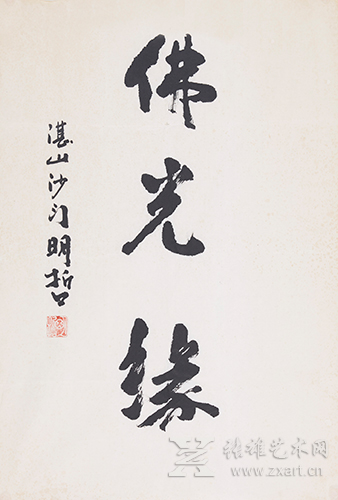 佛光缘
湛山沙门明哲
雅雄艺术网
www.zxart.cn